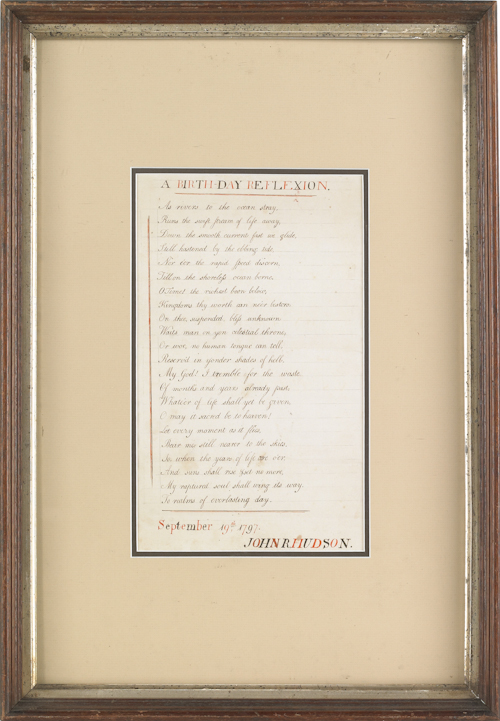 A BIRTH-DAY REFLEXION.
As rivers to the ocean stray,
Runs the swift stream of life away,
Down the smooth current fast we glide,
Still hastened by the ebbing tide,
Nor e'er the rapid speed discern,
Till on the shoreless ocean borne,
O Time! the richest boon below,
Kingdoms thy worth can ne'er bestow.
On thee, suspended, bliss unknown
Waits man, in yon celestial throne,
Or woe, no human tongue can tell,
Reserv'd in yonder shades of hell.
My God! I tremble for the waste
Of months and years already past,
Whate'er of life shall yet be given,
O may it sacred be to heaven!
Let every moment as it flies,
Bear me still nearer to the skies,
So, when the years of life are o'er,
And suns shall rise and set no more,
My raptured soul shall wing its way
To realms of everlasting day.
September 19th 1797.
JOHN R. HUDSON.